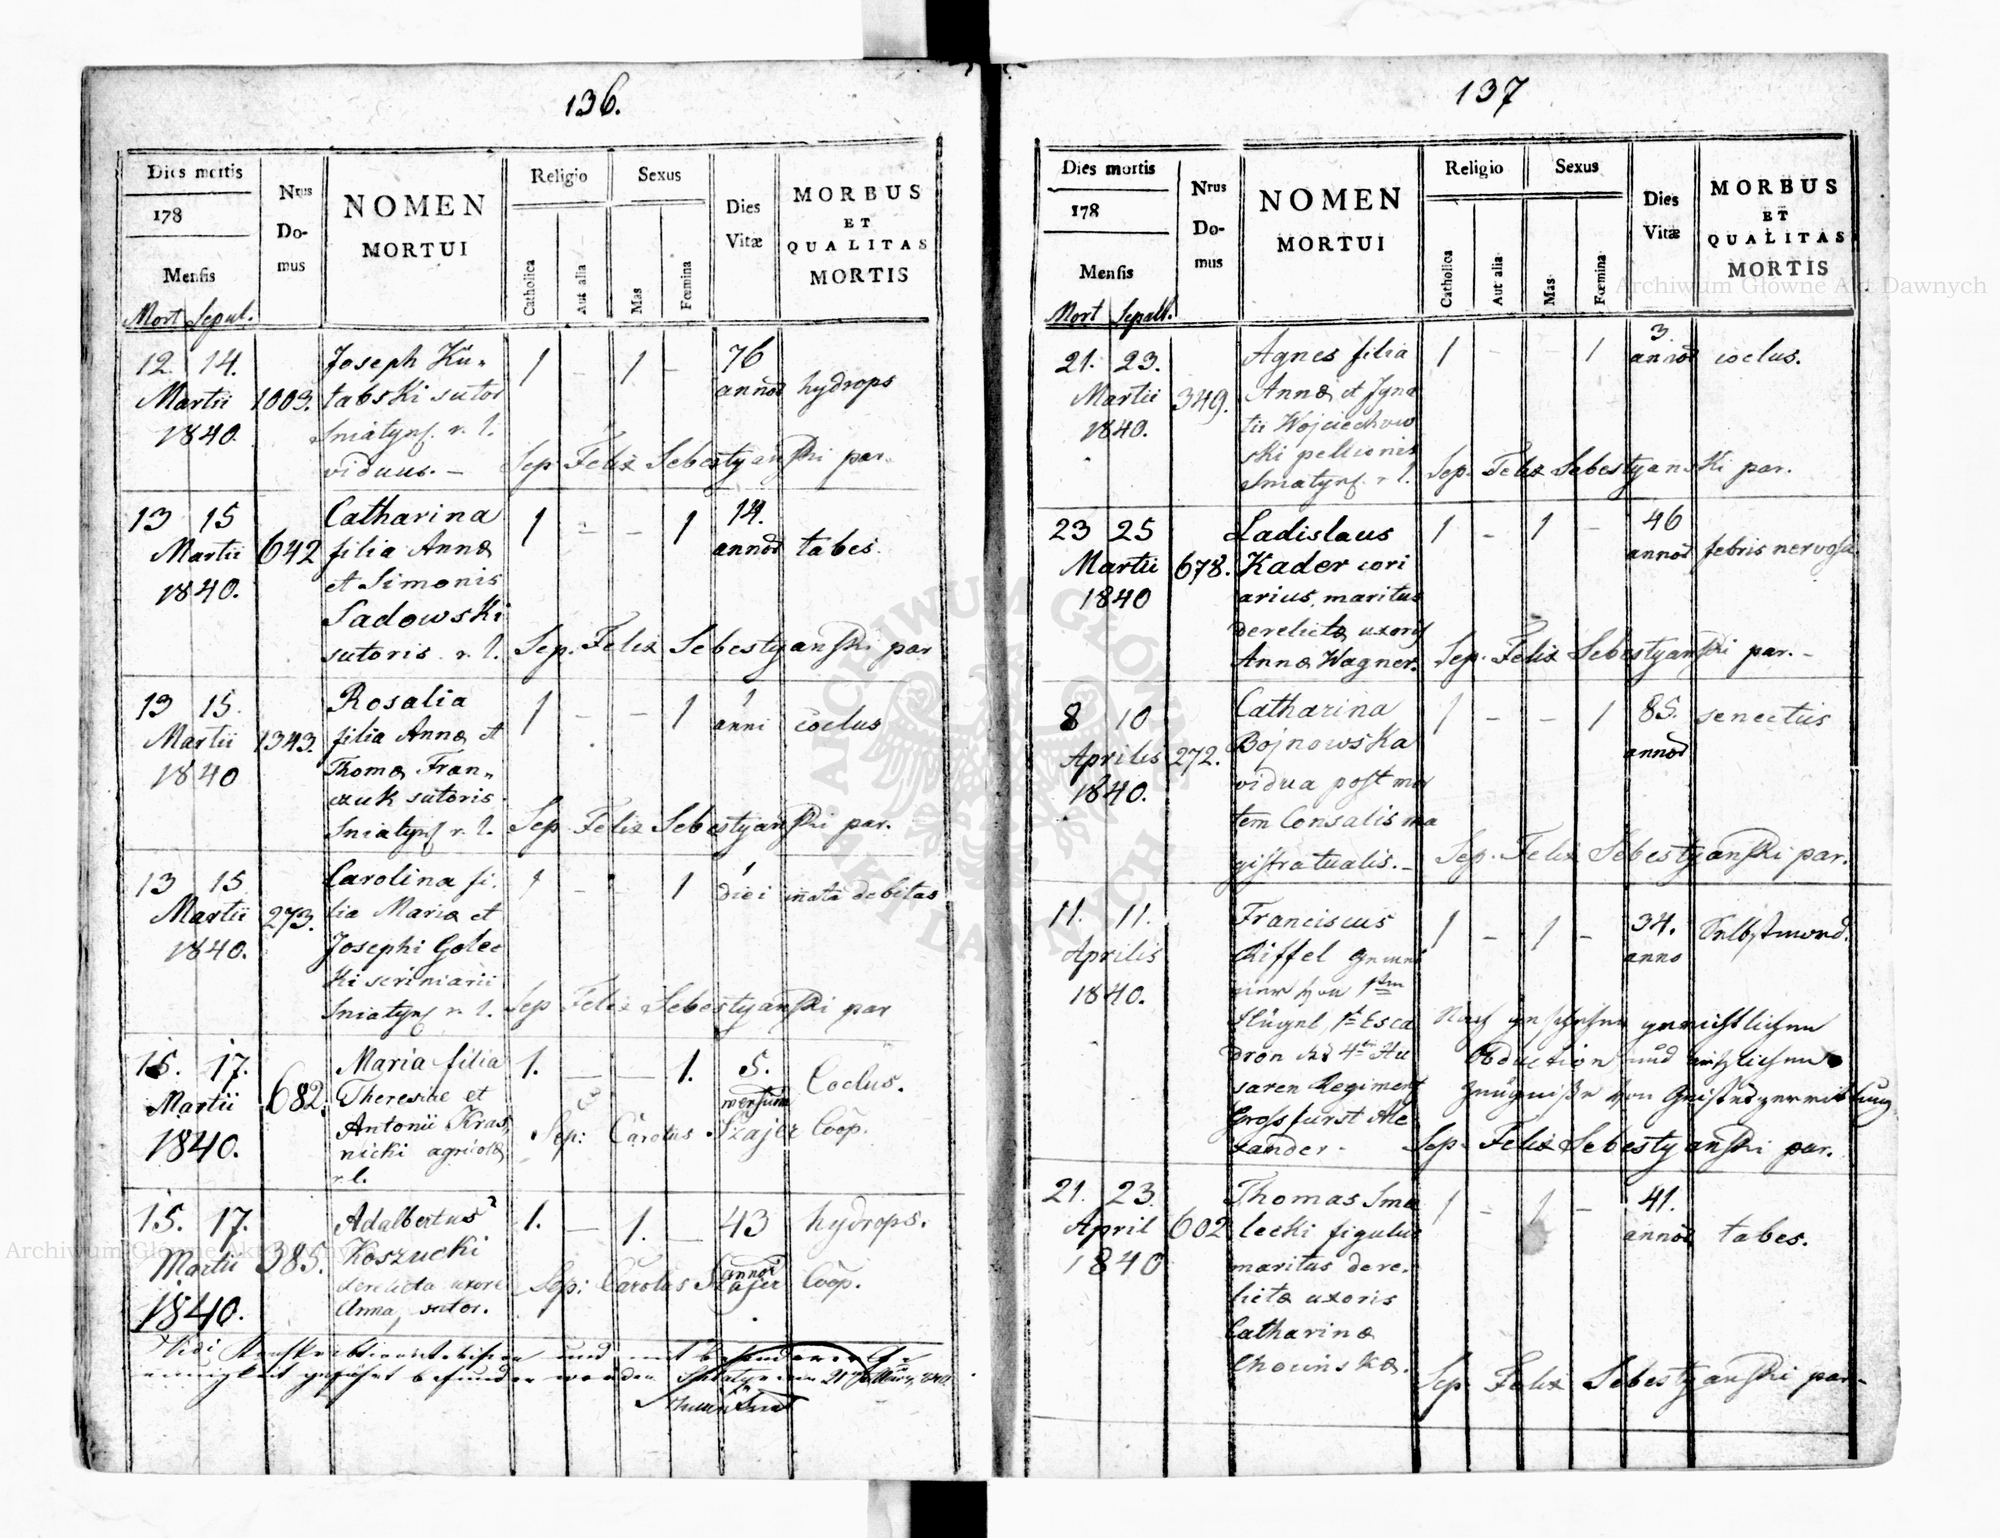 136.
Dies mortis
178
Mensis
Mort Sepul.
Nrus
Do-
mus
NOMEN
MORTUI
Religio
Catholica
Aut alia
Sexus
Mas
Fœmina
Dies
Vitæ
MORBUS
ET
QUALITAS
MORTIS
12. 14.
Martii
1840.
1003.
Joseph Ku-
tabski sutor
Sniatyns. r. l.
viduus. –
1 – 1 –
76
annor
hydrops
Sep. Felix Sebestyanski par.
13 15
Martii
1840.
642
Catharina
filia Annæ
et Simonis
Sadowski
sutoris r. l.
1 – – 1
14.
annor
tabes.
Sep. Felix Sebestyanski par
13 15.
Martii
1840
1343.
Rosalia
filia Annæ et
Thomæ Fran-
czuk sutoris
Sniatyns r. l.
1 – – 1
1
anni
coclus
Sep. Felix Sebestyanski par.
13 15.
Martii
1840.
273.
Carolina fi-
lia Mariæ et
Josephi Golec
ki scriniarii
Sniatyns r. l.
1 – – 1
1
diei
innata debilitas
Sep Felix Sebestyanski par
15. 17.
Martii
1840.
682.
Maria filia
Theresiae et
Antonii Kras
nicki agricolæ
r. l.
1. – – 1.
5.
mensium
Coclus.
Sep: Carolus Szajer Coop.
15. 17.
Martii
1840.
385.
Adalbertus
Koszucki
derelicta uxore
Anna, sutor.
1. – 1. –
43
annor
hydrops.
Sep: Carolus Szajer Coop.
Vidi
und mit besonderer Ge
nauigkeit geführt befunden worden
137
Dies mortis
178
Mensis
Mort Sepult.
Nrus
Do-
mus
NOMEN
MORTUI
Religio
Catholica
Aut alia
Sexus
Mas
Fœmina
Dies
Vitæ
MORBUS
ET
QUALITAS
MORTIS
21. 23.
Martii
1840.
349.
Agnes filia
Annæ et Igna
tii Wojciechow
ski pellionis
Sniatyns. r l.
1 – – 1
3.
annor
coclus.
Sep. Felix Sebestyanski par.
23 25
Martii
1840
678.
Ladislaus
Kader cori
arius, maritus
derelictæ uxoris
Annæ Wagner.
1 – 1 –
46
annor
febris nervosa
Sep. Felix Sebestyanski par. –
8 10
Aprilis
1840.
272.
Catharina
Bojnowska
vidua post mor
tem Consulis ma
gistratualis. –
1 – – 1
85.
annor
senectus
Sep. Felix Sebestyanski par.
11. 11.
Aprilis
1840.
Franciscus
Riffel Gemei
ner von 1ten
Flügel, 1t Esca
dron des 4ten Hu
saren Regiment
Grossfurst Ale
xander –
1 – 1 –
34.
anno
Selbstmord.
Nach geschehener gerichtlichen
Obduction und ärztlichen
Zeugniße von Geisteszerrüttung
Sep. Felix Sebestyanski par.
21. 23.
April
1840
602
Thomas Sma
lecki figulus
maritus dere-
lictæ uxoris
Catharinæ
Chowinskæ.
1 – 1 –
41.
annor
tabes.
Sep. Felix Sebestyanski par –
Archiwum Główne Akt Dawnych
Archiwum Główne Akt Dawnych
ARCHIWUM GŁÓWNE AKT DAWNYCH